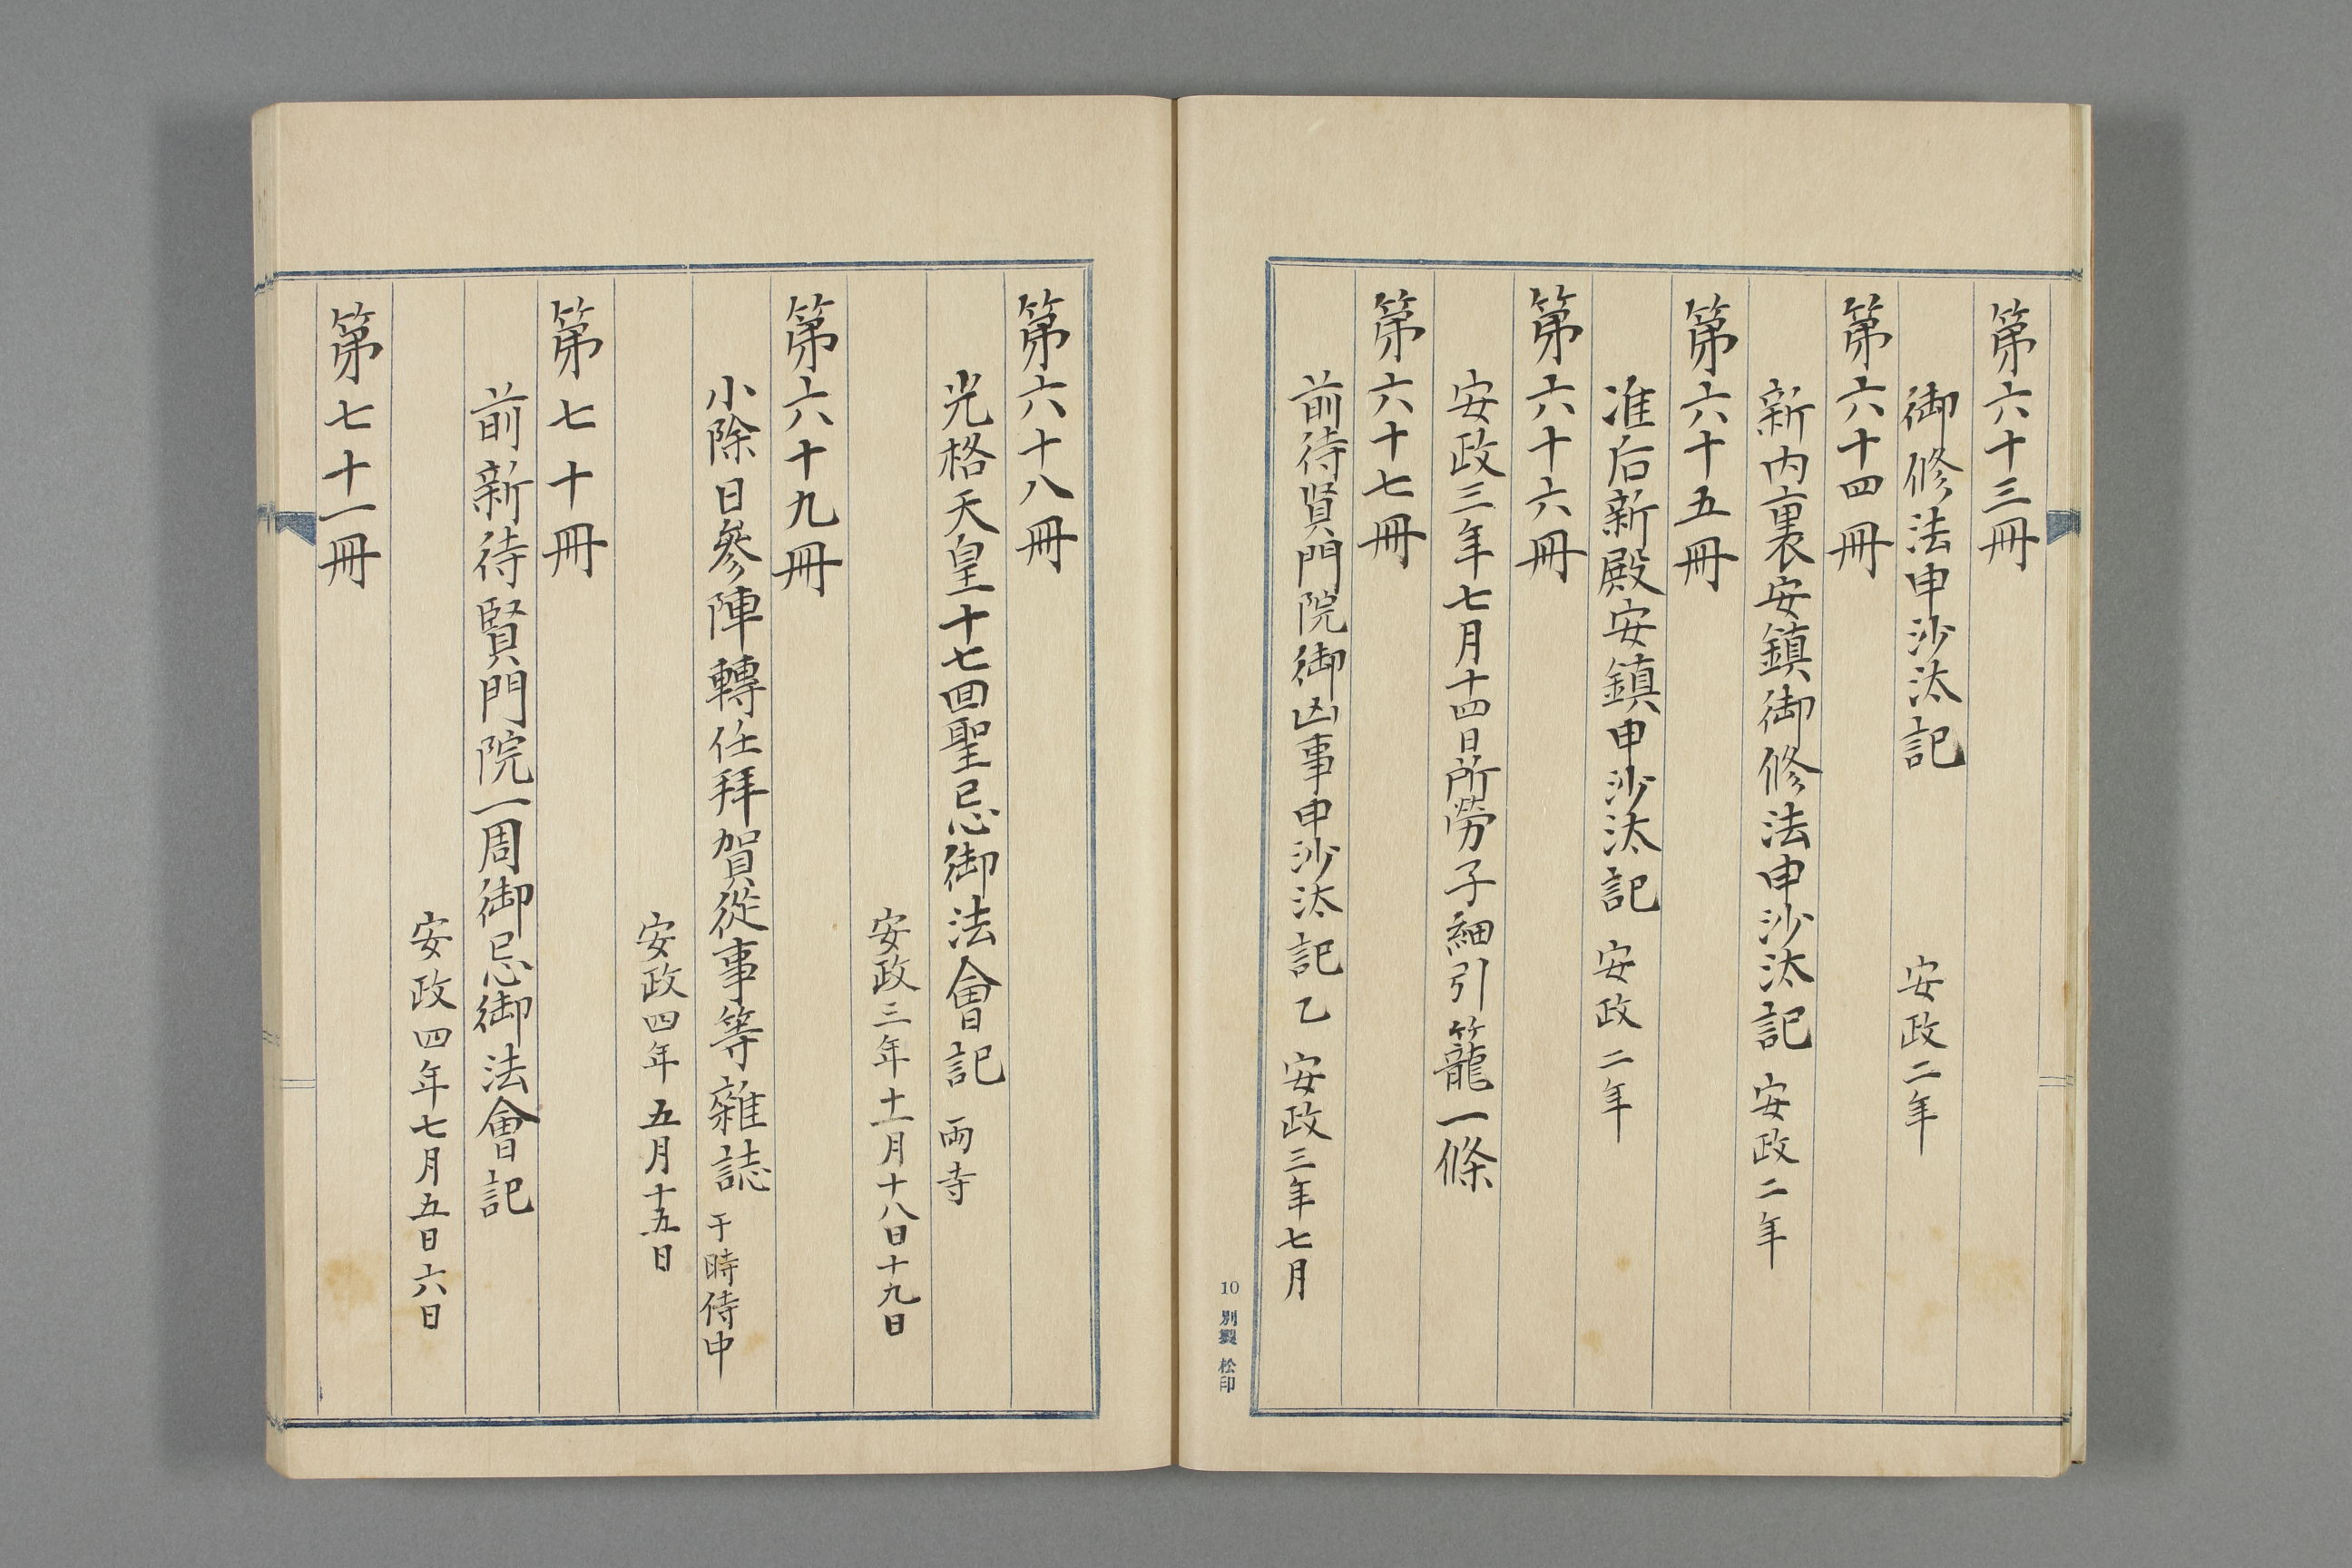 第六十三冊
御修法申沙汰記 安政二年
第六十四冊
新内裏安鎮御修法申沙汰記 安政二年
第六十五冊
准后新殿安鎮申沙汰記 安政二年
第六十六冊
安政三年七月十四日所勞子細引籠一條
第六十七冊
前待賢門院御凶事申沙汰記 乙 安政三年七月
10 別製 松印
第六十八冊
光格天皇十七回聖忌御法會記 両寺
安政三年十一月十八日十九日
第六十九冊
小除日參陣轉任拜賀從事等雜誌 于時侍中
安政四年五月十五日
第七十冊
前新待賢門院一周御忌御法會記
安政四年七月五日六日
第七十一冊